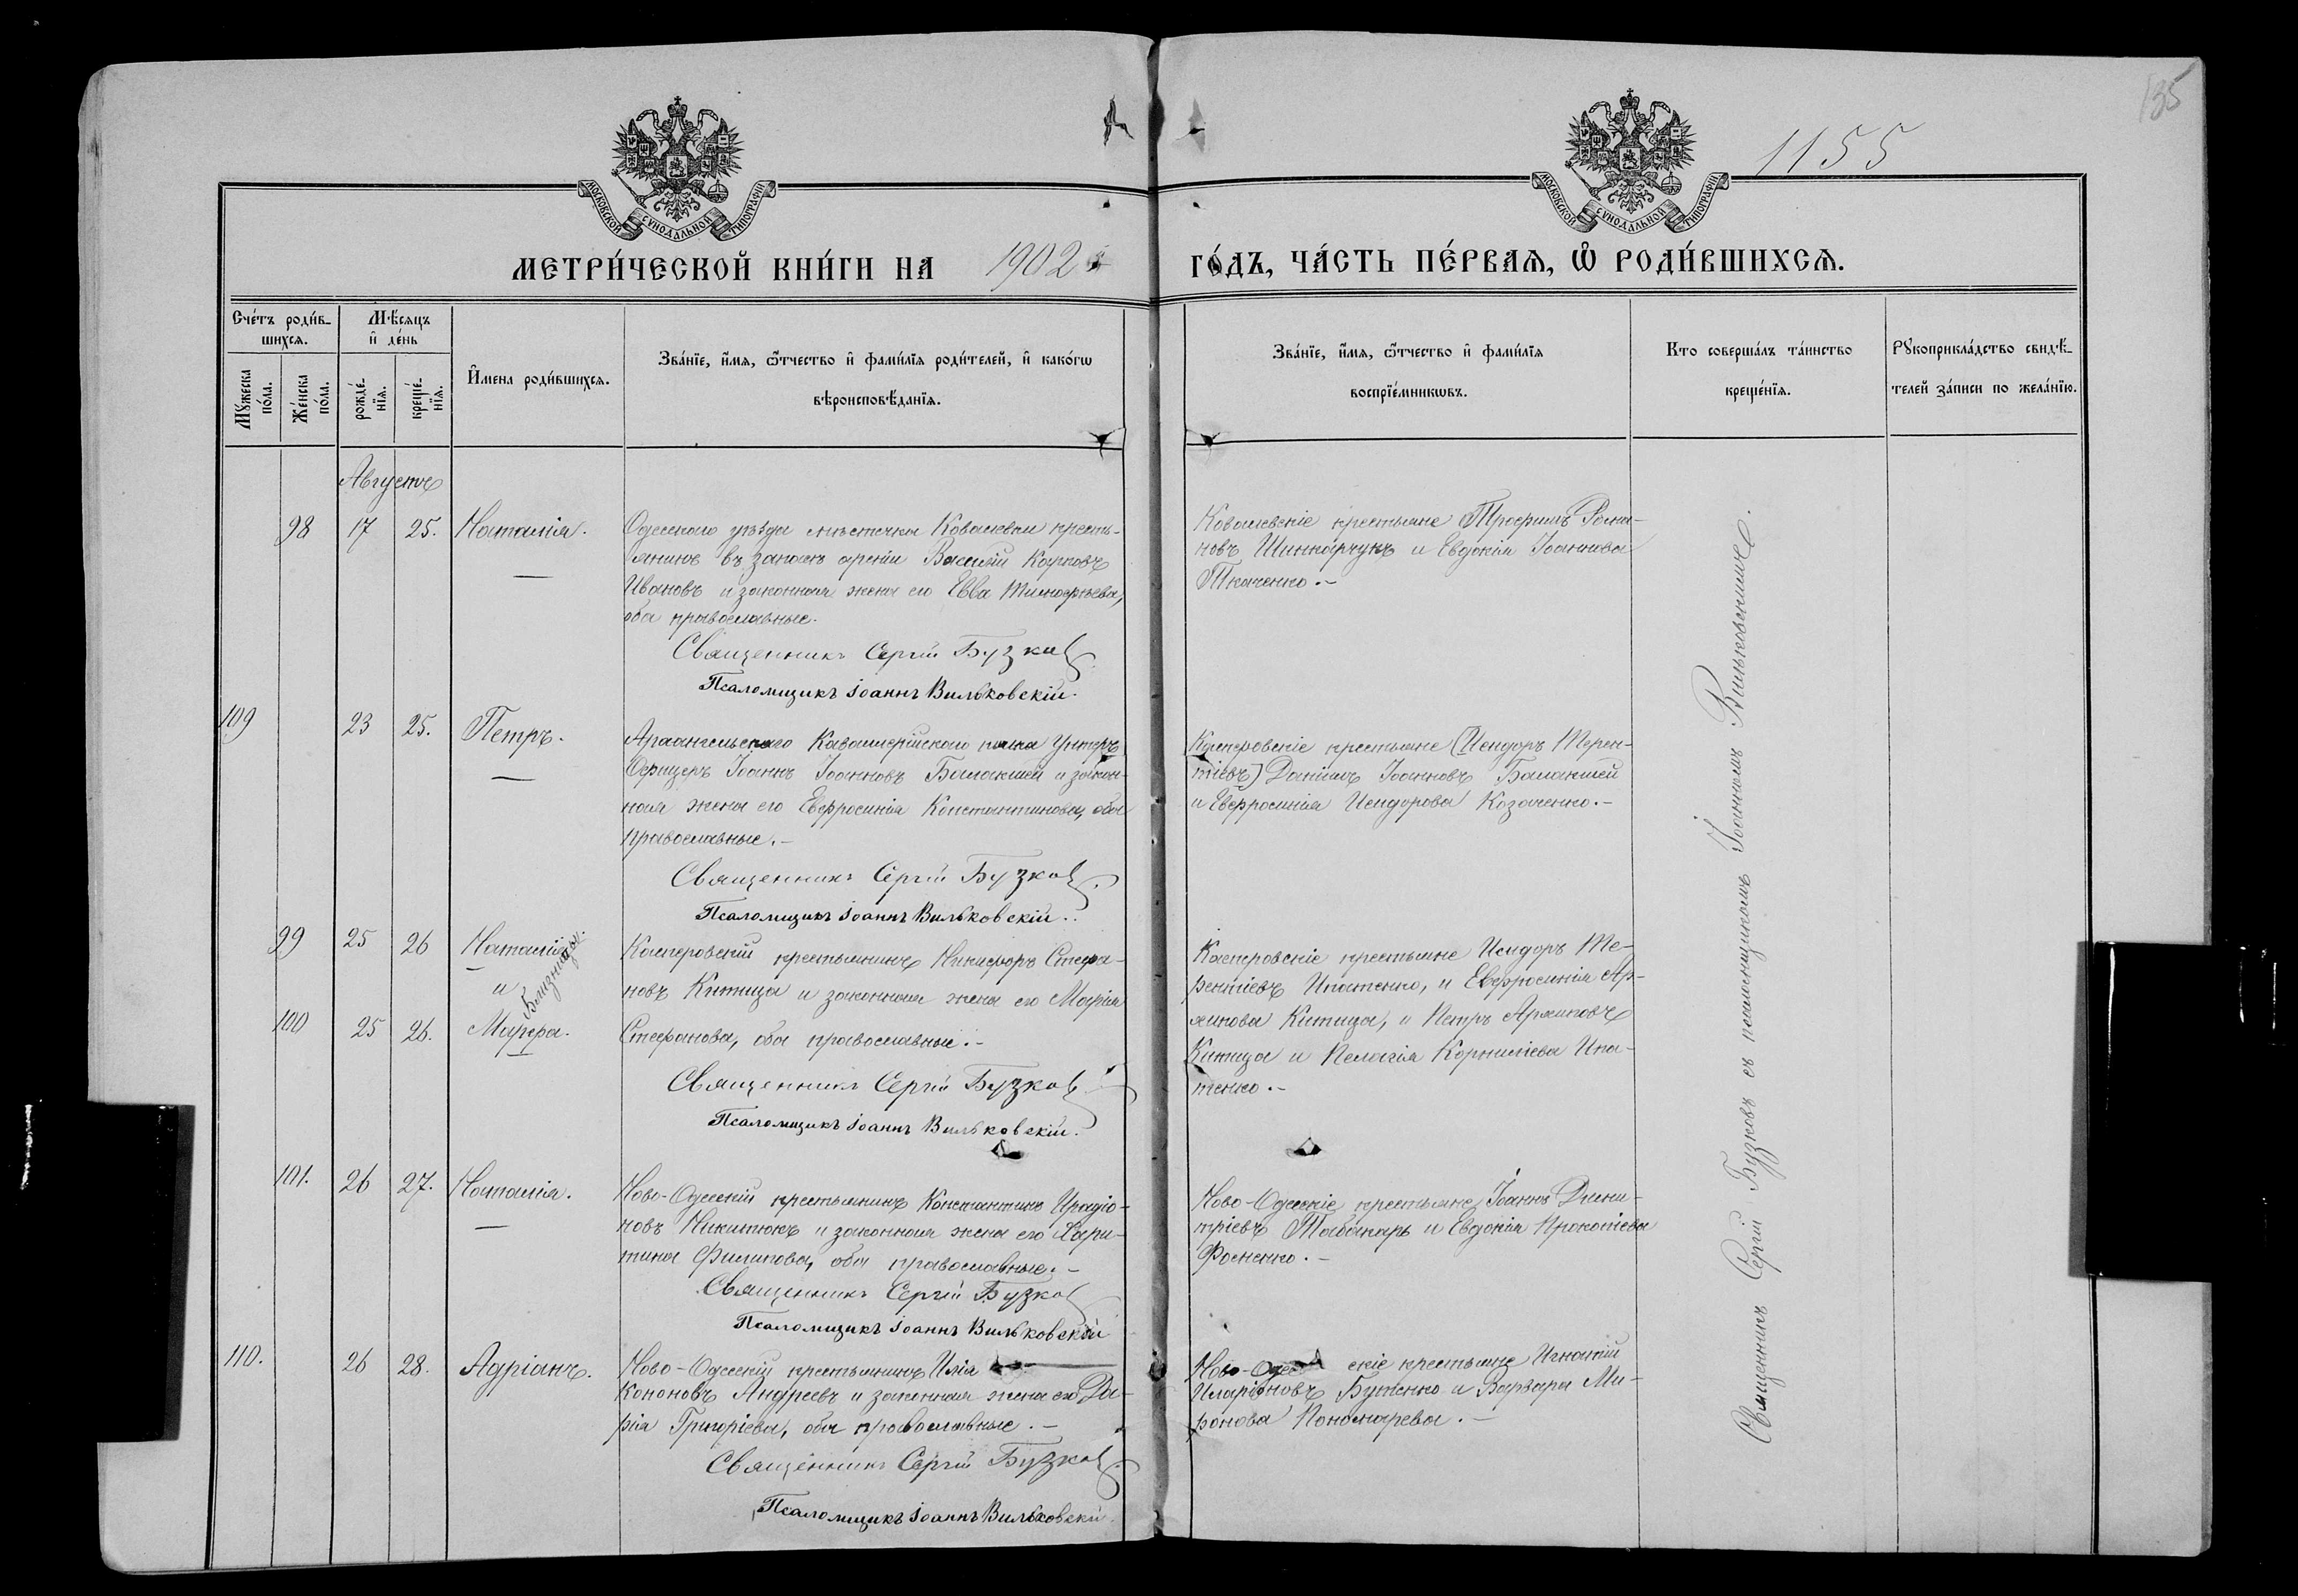 135
1155
МОСКОВСКОЙ СѴНОДАЛЬНОЙ ТИПОГРАФІИ
МОСКОВСКОЙ СѴНОДАЛЬНОЙ ТИПОГРАФІИ
МЕТРИ́ЧЕСКОЙ КНИ́ГИ НА 1902 ГО́ДЪ, ЧА́СТЬ ПЕ́РВАЯ, Ѡ҆ РОДИ́ВШИХСЯ.
Сче́тъ роди́в-
шихся.
Мꙋ́жеска по́ла.
Же́нска по́ла.
Мѣ́сяцъ
и҆ де́нь
рожде́-
нїя.
креще́-
нїя.
И҆мена роди́вшихся.
Зва́нїе, и҆́мя, ѻ҆́тчество и҆ фами́лїя роди́телей, и҆ како́гѡ
вѣроисповѣ́данїя.
Зва́нїе, и҆́мя, ѻ҆́тчество и҆ фами́лїя
воспрїе́мникѡвъ.
Кто соверша́лъ та́инство
креще́нїя.
Рꙋкоприкла́дство свидѣ́-
телей за́писи по жела́нїю.
Августъ
98 17 25. Наталія.
Одесскаго уѣзда мѣстечка Ковалевки кресть-
янинъ въ запасѣ арміи Василій Карповъ
Ивановъ и законная жена его Евва Тимофѣева,
оба православные.
Священникъ Сергій Бузковъ
Псаломщикъ Іоаннъ Вильковскій.
Ковалевскіе крестьяне Трофимъ Рома-
новъ Шинкарчукъ и Евдокія Іоаннова
Ткаченко.-
109 23 25. Петръ.
Архангельскаго Кавалерійскаго полка Унтеръ
Офицеръ Іоаннъ Іоанновъ Балакшей и закон-
ная жена его Евфросинія Константинова, оба
православные.-
Священникъ Сергій Бузковъ.
Псаломщикъ Іоаннъ Вильковскій.
Касперовскіе крестьяне (Исидоръ Терен-
тіевъ) Даніилъ Іоанновъ Балакшей
и Евфросинія Исидорова Козаченко.-
99 25 26 Наталія
и Близнецы.
100 25 26. Марфа.
Касперовскій крестьянинъ Никифоръ Стефа-
новъ Китица и законная жена его Марія
Стефанова, оба православные.-
Священникъ Сергій Бузковъ
Псаломщикъ Іоаннъ Вильковскій.
Касперовскіе крестьяне Исидоръ Те-
рентіевъ Ипатенко, и Евфросинія Ар-
хипова Китица, и Петръ Архиповъ
Китица и Пелагія Корниліева Ипа-
тенко.-
101. 26 27. Наталія.
Ново-Одесскій крестьянинъ Константинъ Иродіо-
новъ Никитюкъ и законная жена его Хари-
тина Филипова, оба православные.-
Священникъ Сергій Бузковъ
Псаломщикъ Іоаннъ Вильковскій
Ново-Одесскіе крестьяне Іоаннъ Дими-
тріевъ Табанарь и Евдокія Прокопіева
110. 26 28. Адріанъ.
Ново-Одесскій крестьянинъ Илія
Кононовъ Андреевъ и законная жена его Да-
рія Григоріева, оба православные.-
Священникъ Сергій Бузковъ.
Псаломщикъ Іоаннъ Вильковскій.
Ново-Одесскіе крестьяне Игнатій
Иларіоновъ Бутенко и Варвара Ми-
ронова Пономарева.-
Священникъ Сергій Бузковъ съ псаломщикомъ Іоанномъ Вильковскимъ.